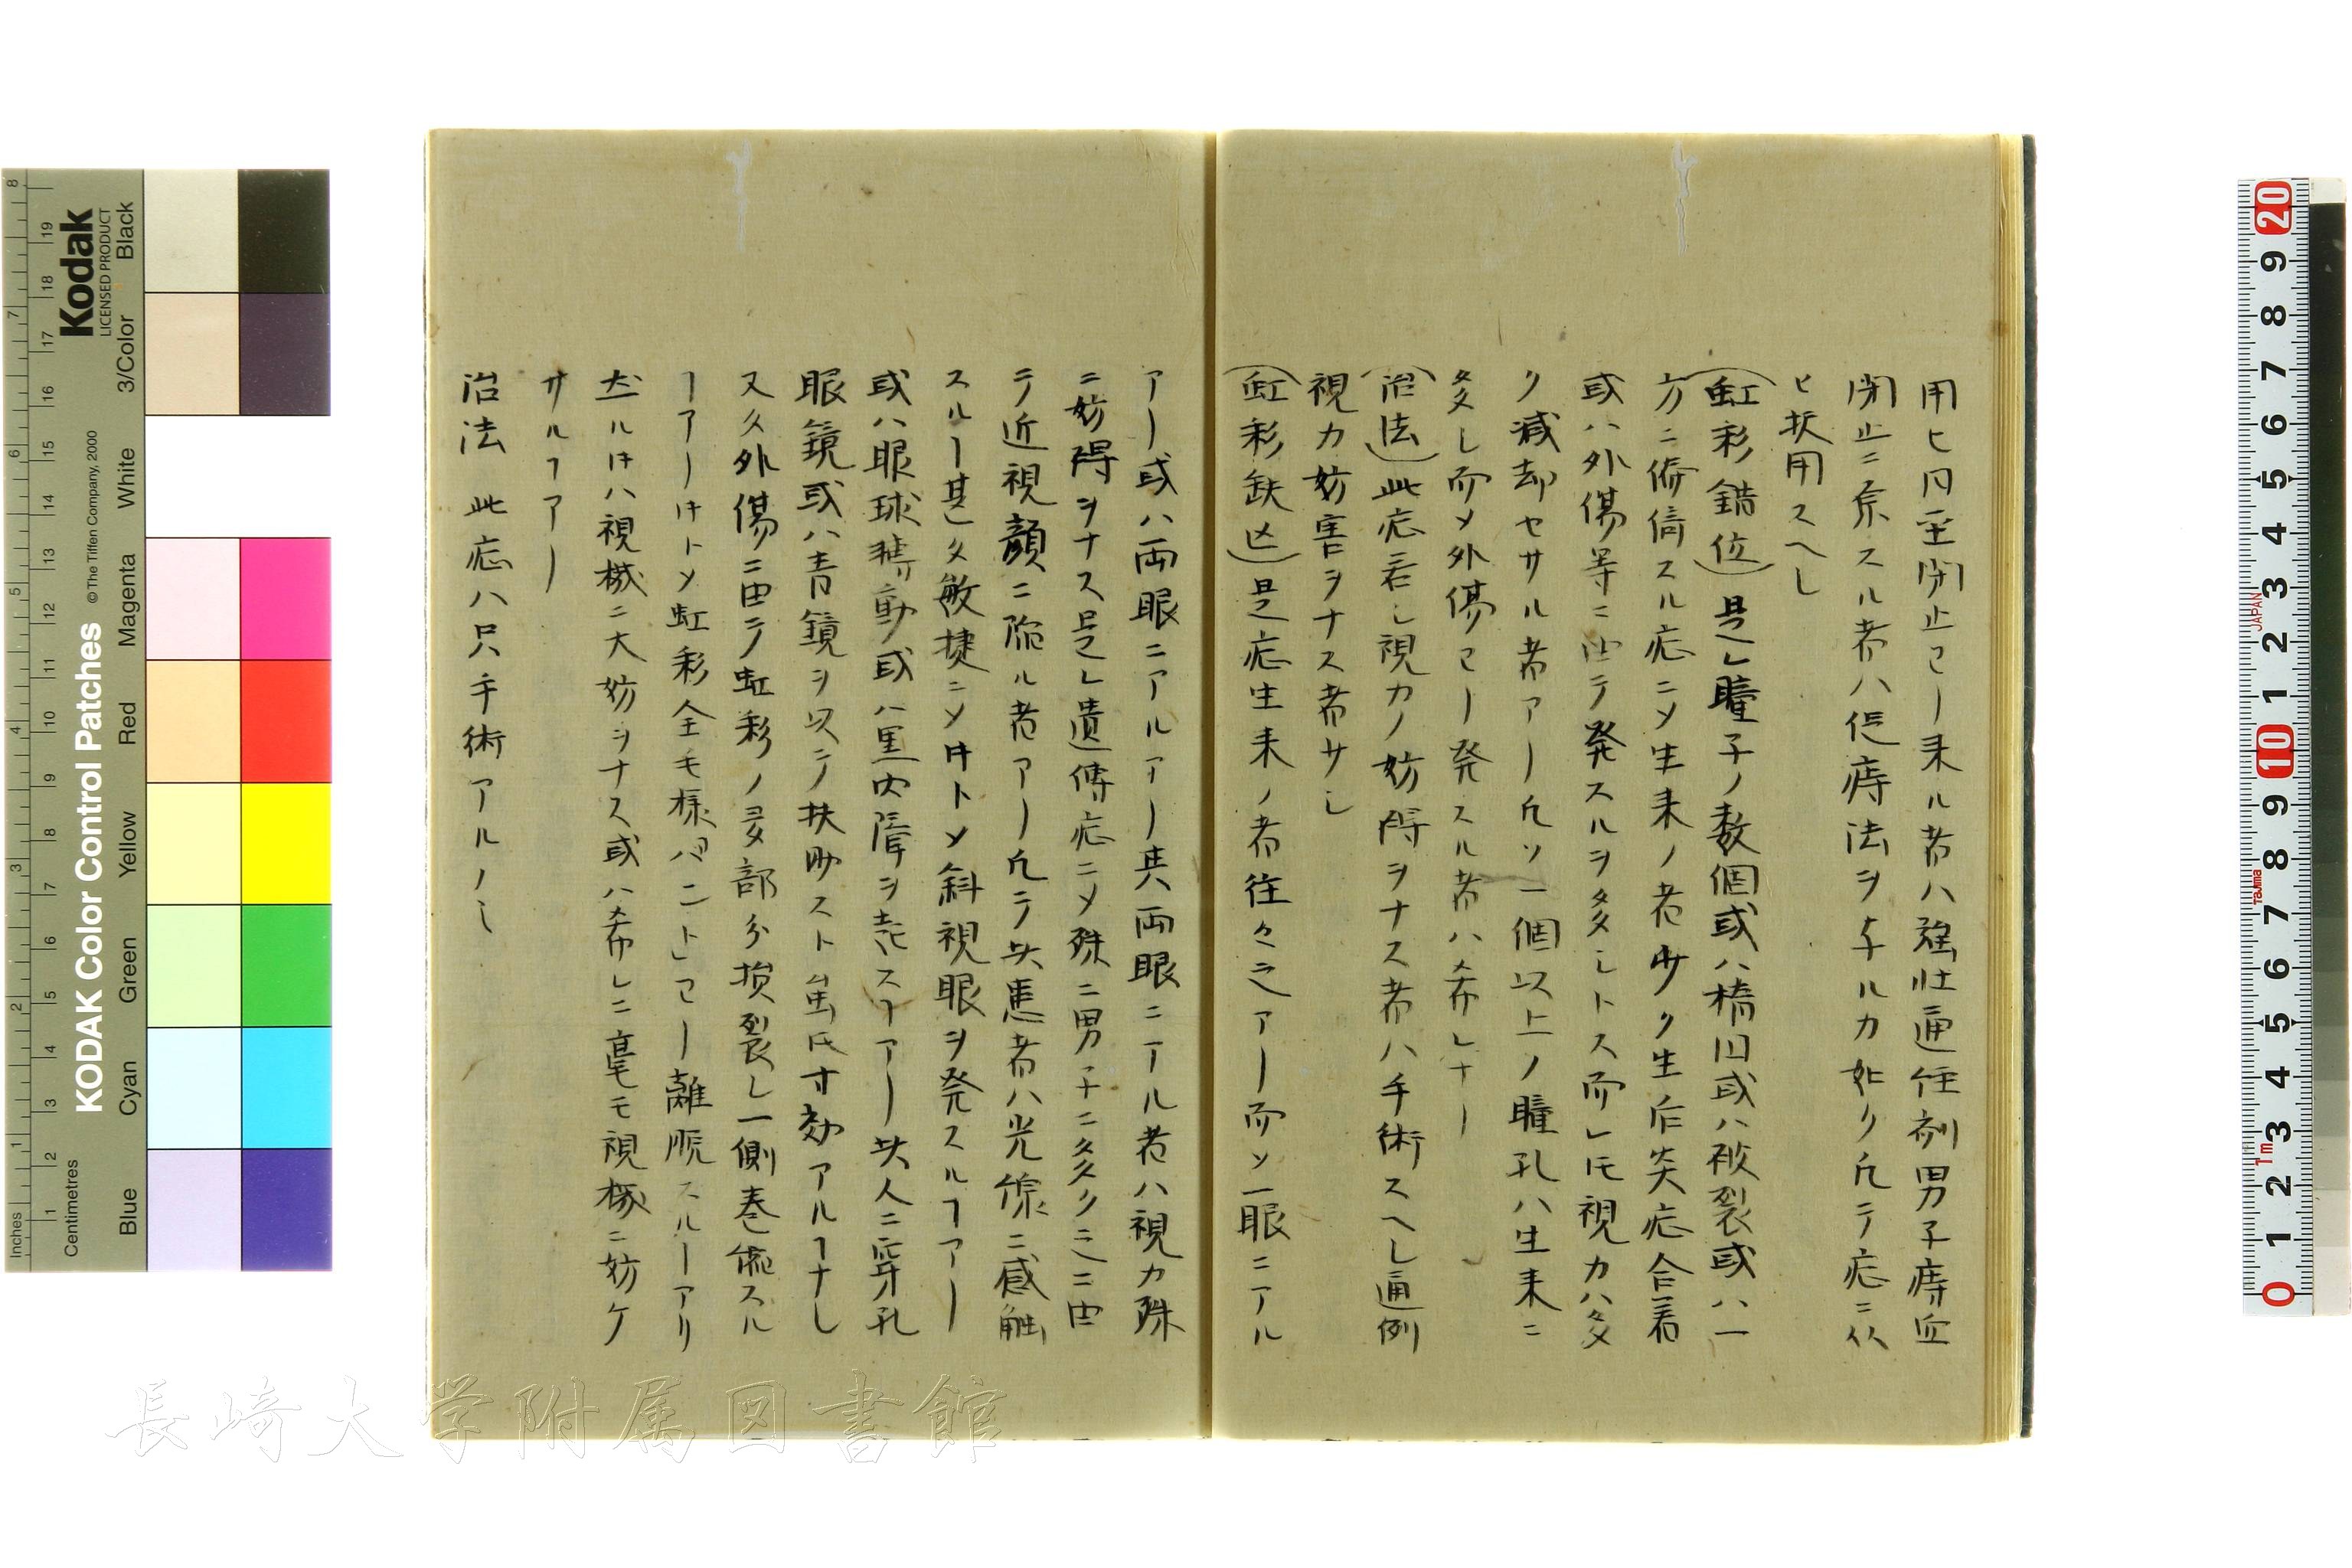 用ヒ月至閉止ヨー来ル者ハ強壮通任剤男子痔疾
閉止ニ原スル者ハ促痔法ヲ行ルカ如ク凡テ症ニ仍
ヒ扶用スヘし
(虹彩錯位)是レ瞳子ノ数個或ハ楕円或ハ被裂或ハ一
方ニ偏倚スル症ニメ生来ノ者少ク生后炎症合着
或ハ外傷等ニ由テ発スルヲ多しトス而レ𪜈視力ハ多
ク減却セサル者アー凡ソ一個以上ノ瞳孔ハ生来ニ
多し而メ外傷ヨー発スル者ハ希レナー
(治法)此症若し視力ノ妨碍ヲナス者ハ手術スヘし通例
視力妨害ヲナス者ナし
(虹彩缺亡)是レ症生来ノ者往々之アー而メ一眼ニアル
アー或ハ両眼ニアルアー其両眼ニアル者ハ視力殊
ニ妨碍ヲナス是レ遺傳症ニメ殊ニ男子ニ多ク之ニ由
テ近視顔ニ陥ル者アー凡テ失患者ハ光線ニ感触
スルー甚タ敏捷ニメ時トメ斜視眼ヲ発スルヿアー
或ハ眼球搏動或ハ黒内障ヲ患スヿアー失人ニ穿孔
眼鏡或ハ青鏡ヲ以テ扶助スト虽𪜈寸効アルヿナし
又久外傷ニ由テ虹彩ノ多部分損裂し一側巻縮スル
ヿアー时トメ虹彩全毛様「バント」ヨー離脱スルーアリ
左ル时ハ視機ニ大妨ヲナス或ハ希レニ毫モ視機ニ妨ケ
サルヿアー
治法 此症ハ只手術アルノミ
長崎大学附属図書館
KODAK Color Control Patches
© The Tiffen Company, 2000
Kodak
LICENSED PRODUCT
Inches
Centimetres
Blue
Cyan
Green
Yellow
Red
Magenta
White
3/Color
Black
JAPAN
Tajima
1m